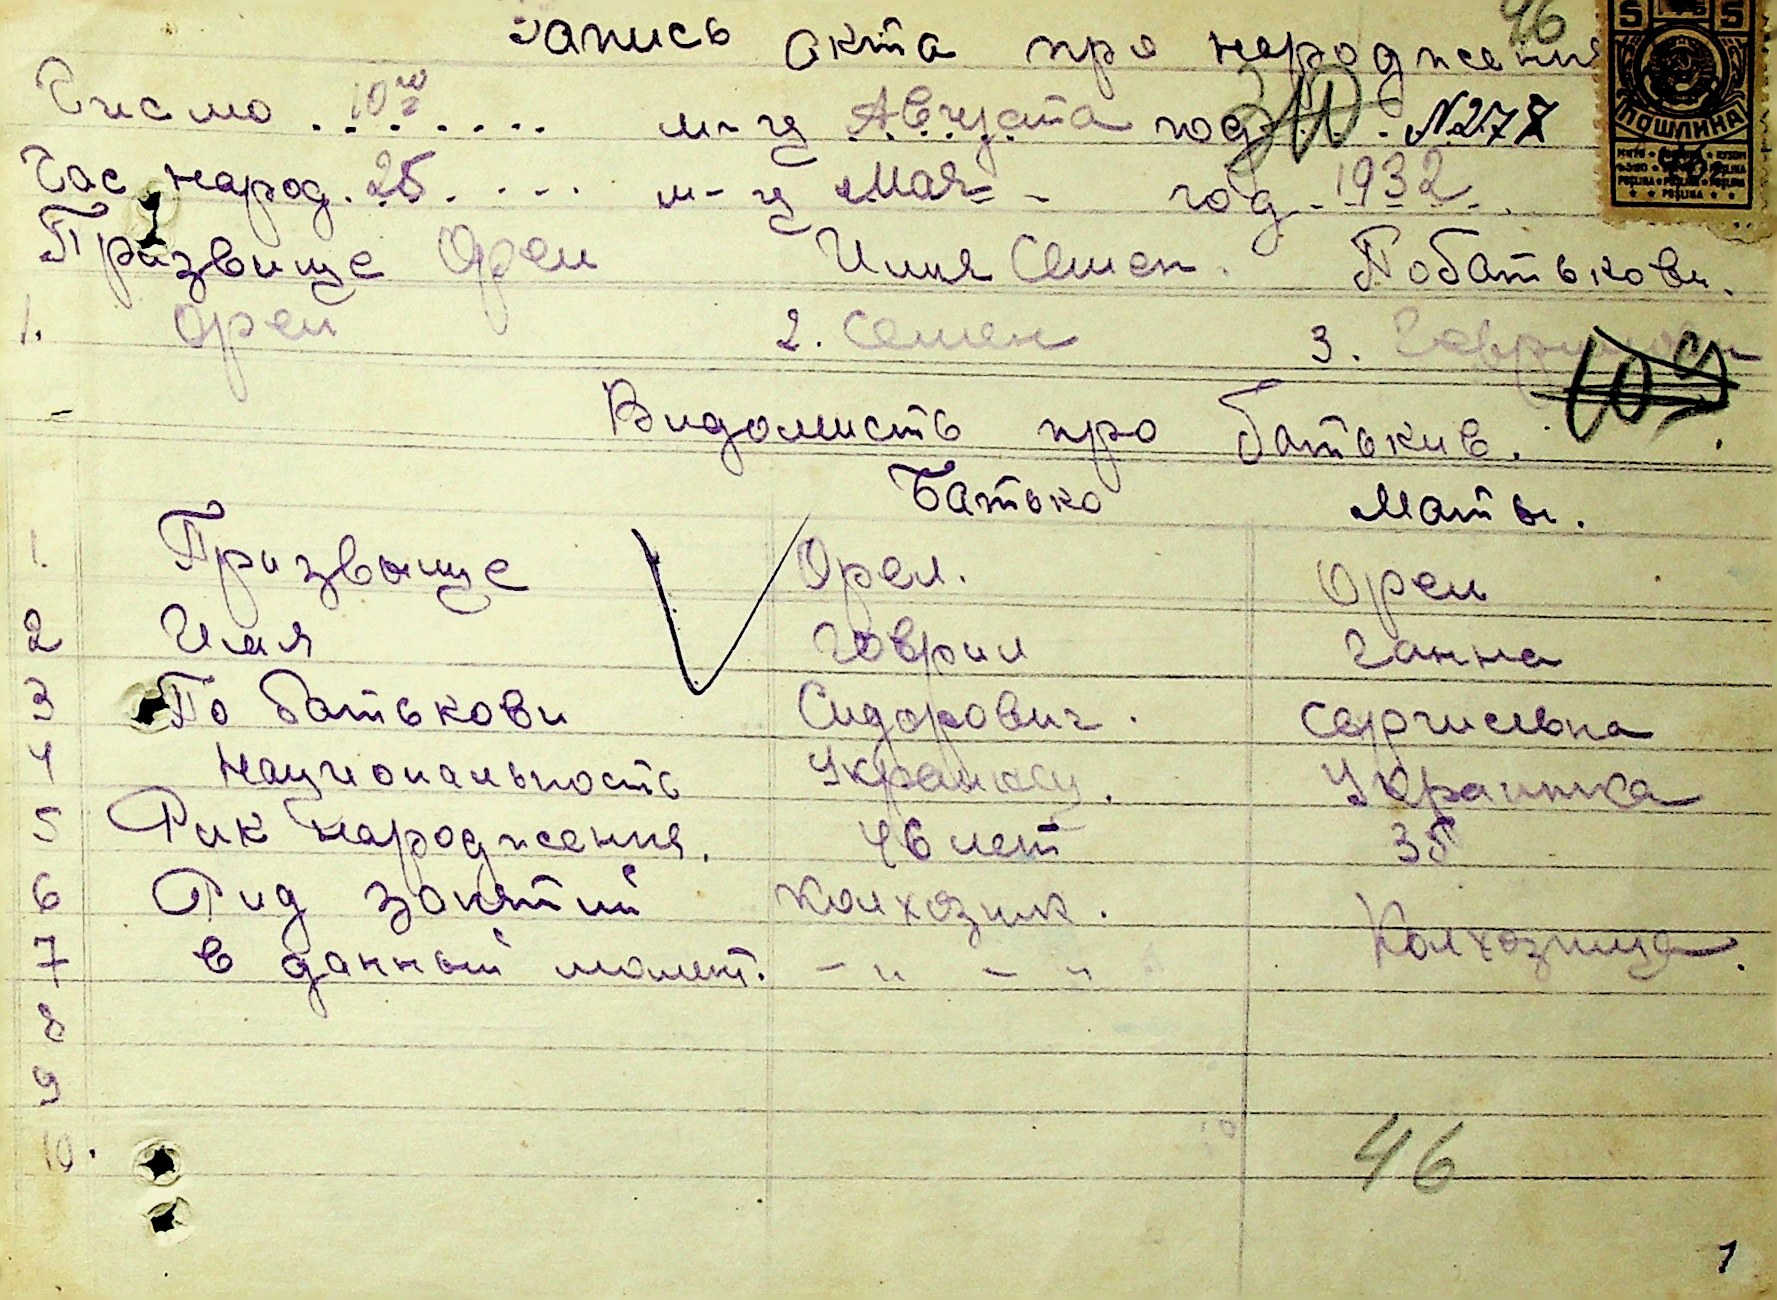 46
Запись акта про народжения
5 5
Число 10го м-ц Августа год N.278
ПОШЛИНА
Час народ. 25 м-ц Мая год 1932
Призвище Орел Имя Семен. Побатькови.
1. Орел 2. Семен 3.
Видомисть про батькив.
Батько Маты.
1. Призвыще Орел. Орел
2 Имя Говрил Ганна
3 По батькови Сидорович. Сергиевна
4 Националъность Украинка
5 Рик народжения. 46 лет 35
6 Рид занятий Колхозник. Колхозница.
7 в данный момент. - " - "
8
9
10.
46
1